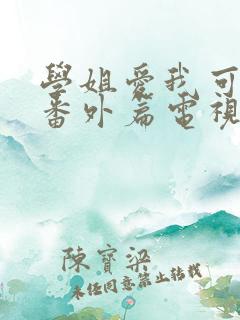 學姐愛我可
番外篇電視
陳寶梁
未經同意禁止轉載